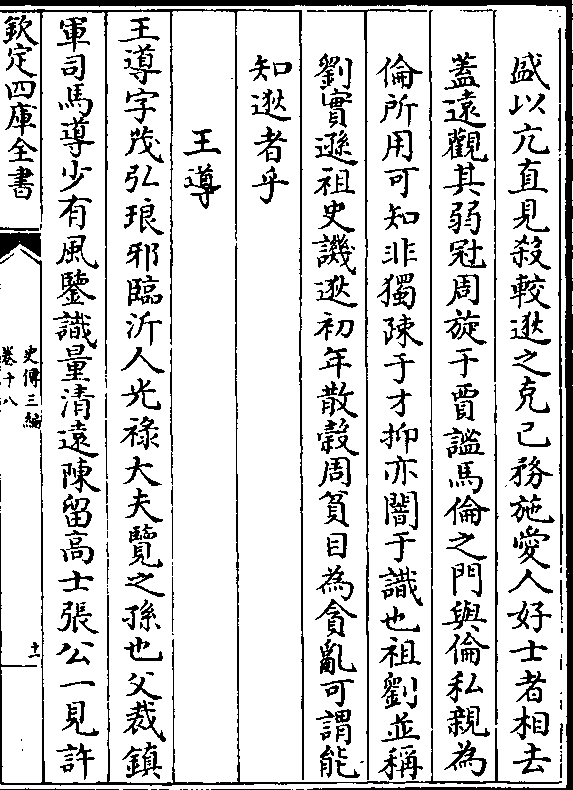 盛以亢直見殺較逖之克己務施愛人好士者相去
蓋遠觀其弱冠周旋于賈謐馬倫之門與倫私親為
倫所用可知非獨踈于才抑亦闇于識也祖劉並稱
劉實遜祖史譏逖初年散穀周貧目為貪亂可謂能
知逖者乎
王導
王導字茂弘琅邪臨沂人光祿大夫覽之孫也父裁鎮
軍司馬導少有風鑒識量清遠陳留高士張公一見許
欽定四庫全書
史傳三編
卷十八
十一